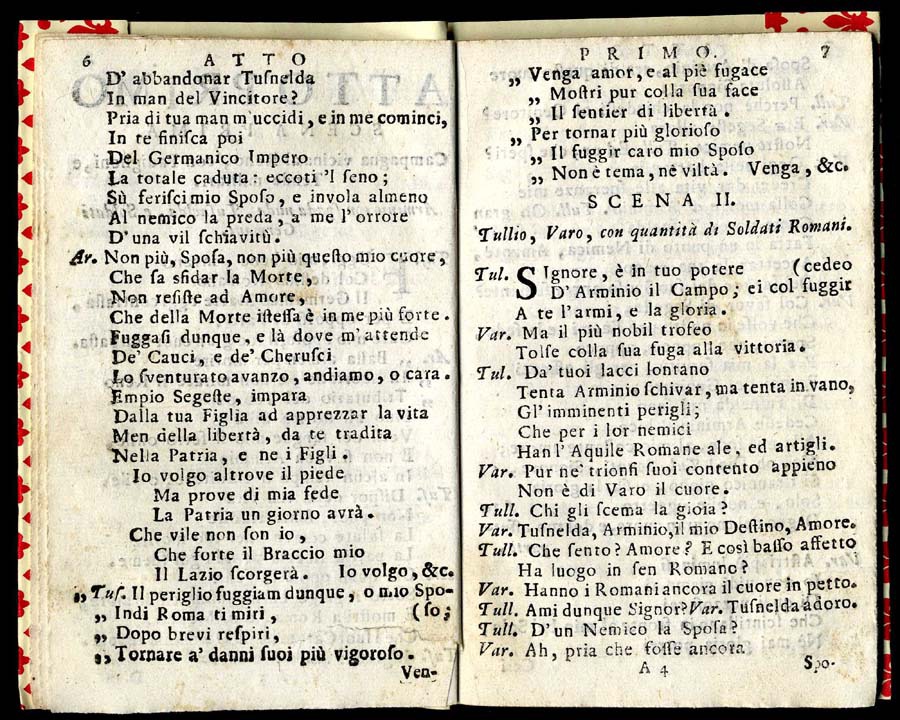 6 ATTO
D' abbandonar Tuſnelda
In man del Vincitore?
Pria di tua man m'uccidi, e in me cominci,
In te finiſca poi
Del Germanico Impero
La totale caduta: eccoti 'l ſeno;
Sù feriſci mio Spoſo, e invola almeno
Al nemico la preda, a me l' orrore
D'una vil ſchiavitù.
Ar. Non più, Spoſa, non più queſto mio cuore,
Che ſa sfidar la Morte,
Non reſiſte ad Amore,
Che della Morte iſteſſa è in me più forte.
Fuggaſi dunque, e là dove m' attende
De' Cauci, e de' Cheruſci
Lo ſventurato avanzo, andiamo, o cara.
Empio Segeſte, impara
Dalla tua Figlia ad apprezzar la vita
Men della libertà, da te tradita
Nella Patria, e ne i Figli.
Io volgo altrove il piede
Ma prove di mia fede
La Patria un giorno avrà.
Che vile non ſon io,
Che forte il Braccio mio
Il Lazio ſcorgerà. Io volgo, &c.
„ Tuſ. Il periglio fuggiam dunque, o mio Spo-
„ Indi Roma ti miri, (ſo;
„ Dopo brevi reſpiri,
„ Tornare a' danni ſuoi più vigoroſo.
Ven-
PRIMO. 7
„ Venga amor, e al piè fugace
„ Moſtri pur colla ſua face
„ Il ſentier di libertà.
„ Per tornar più glorioſo
„ Il fuggir caro mio Spoſo
„ Non è tema, nè viltà. Venga, &c.
SCENA II.
Tullio, Varo, con quantità di Soldati Romani.
Tul. SIgnore, è in tuo potere (cedeo
D'Arminio il Campo; ei col fuggir
A te l'armi, e la gloria.
Var. Ma il più nobil trofeo
Tolſe colla ſua fuga alla vittoria.
Tul. Da' tuoi lacci lontano
Tenta Arminio ſchivar, ma tenta in vano,
Gl' imminenti perigli;
Che per i lor nemici
Han l'Aquile Romane ale, ed artigli.
Var. Pur ne' trionfi ſuoi contento appieno
Non è di Varo il cuore.
Tull. Chi gli ſcema la gioia?
Var. Tuſnelda, Arminio, il mio Deſtino, Amore.
Tull. Che ſento? Amore? E così baſſo affetto
Ha luogo in ſen Romano?
Var. Hanno i Romani ancora il cuore in petto.
Tull. Ami dunque Signor? Var. Tuſnelda adoro.
Tull. D'un Nemico la Spoſa?
Var. Ah, pria che foſſe ancora
A 4 Spo-